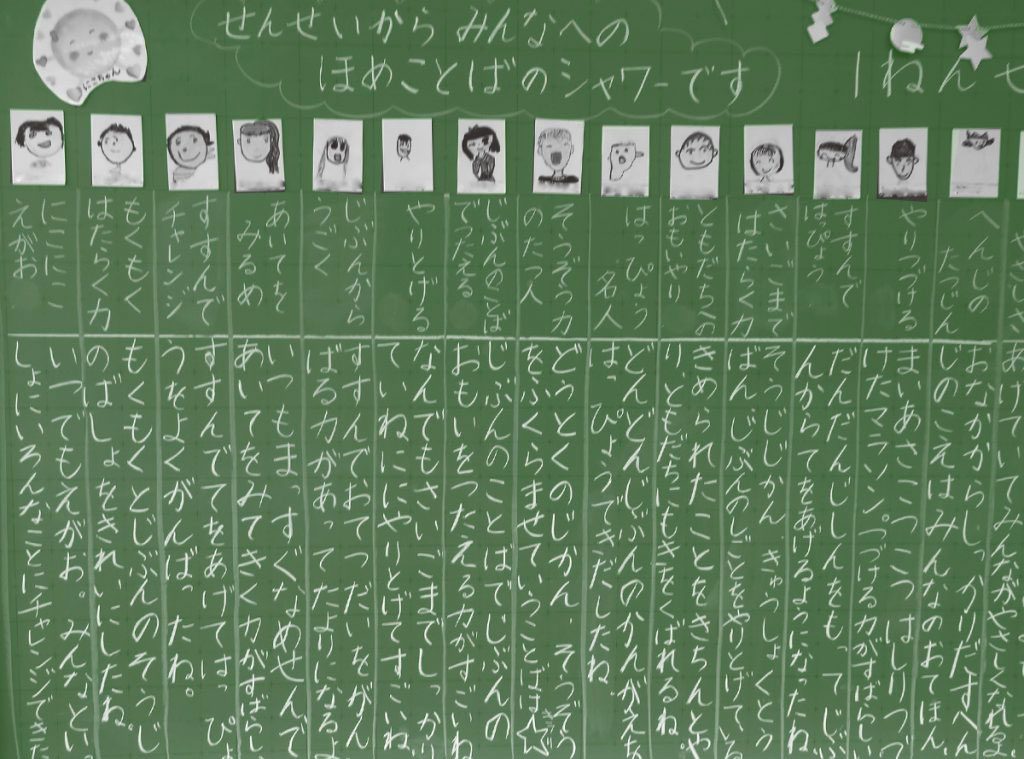 せんせいから みんなへの
ほめことばのシャワーです
1ねんせ
にこちゃん
やさしさ
あけていてみんながやさしくなれるね
へんじの
たつじん
おなかからしっかりだすへん
じのこえはみんなのおてほん
やりつづける
まいあさこつこつはしりつづ
けたマラソン。つづける力がすばらしい
すすんで
はっぴょう
だんだんじしん もってじぶ
んからてをあげるようになったね
さいごまで
はたらく力
そうじじかん きゅうしょくとう
ばん じぶんのしごとをやりとげている
ともだちへの
おもいやり
きめられたことをきちんとや
り、ともだちにもきをくばれるね
はっぴょう
名人
どんどんじぶんのかんがえを
はっぴょうできだしたね
そうぞう力
のたつ人
どうとくのじかん、そうぞう
をふくらませていうことばは☆
じぶんのことば
でつたえる
じぶんのことばでじぶんの
おもいをつたえる力がすごいね
やりとげる
なんでもさいごまでしっかり
ていねいにやりとげてすごいね
じぶんから
うごく
すすんでおてつだいをがん
ばる力があってたよりになるよ
あいてを
みるめ
いつもまっすぐなめせんで
あいてをみてきく力がすばらし
すすんで
チャレンジ
すすんでてをあげてはっぴょ
うをよくがんばったね。
もくもく
はたらく力
もくもくとじぶんのそうじ
のばしょをきれいにしたね。
にこにこ
えがお
いつでもえがお。みんなとい
しょにいろんなことにチャレンジできた